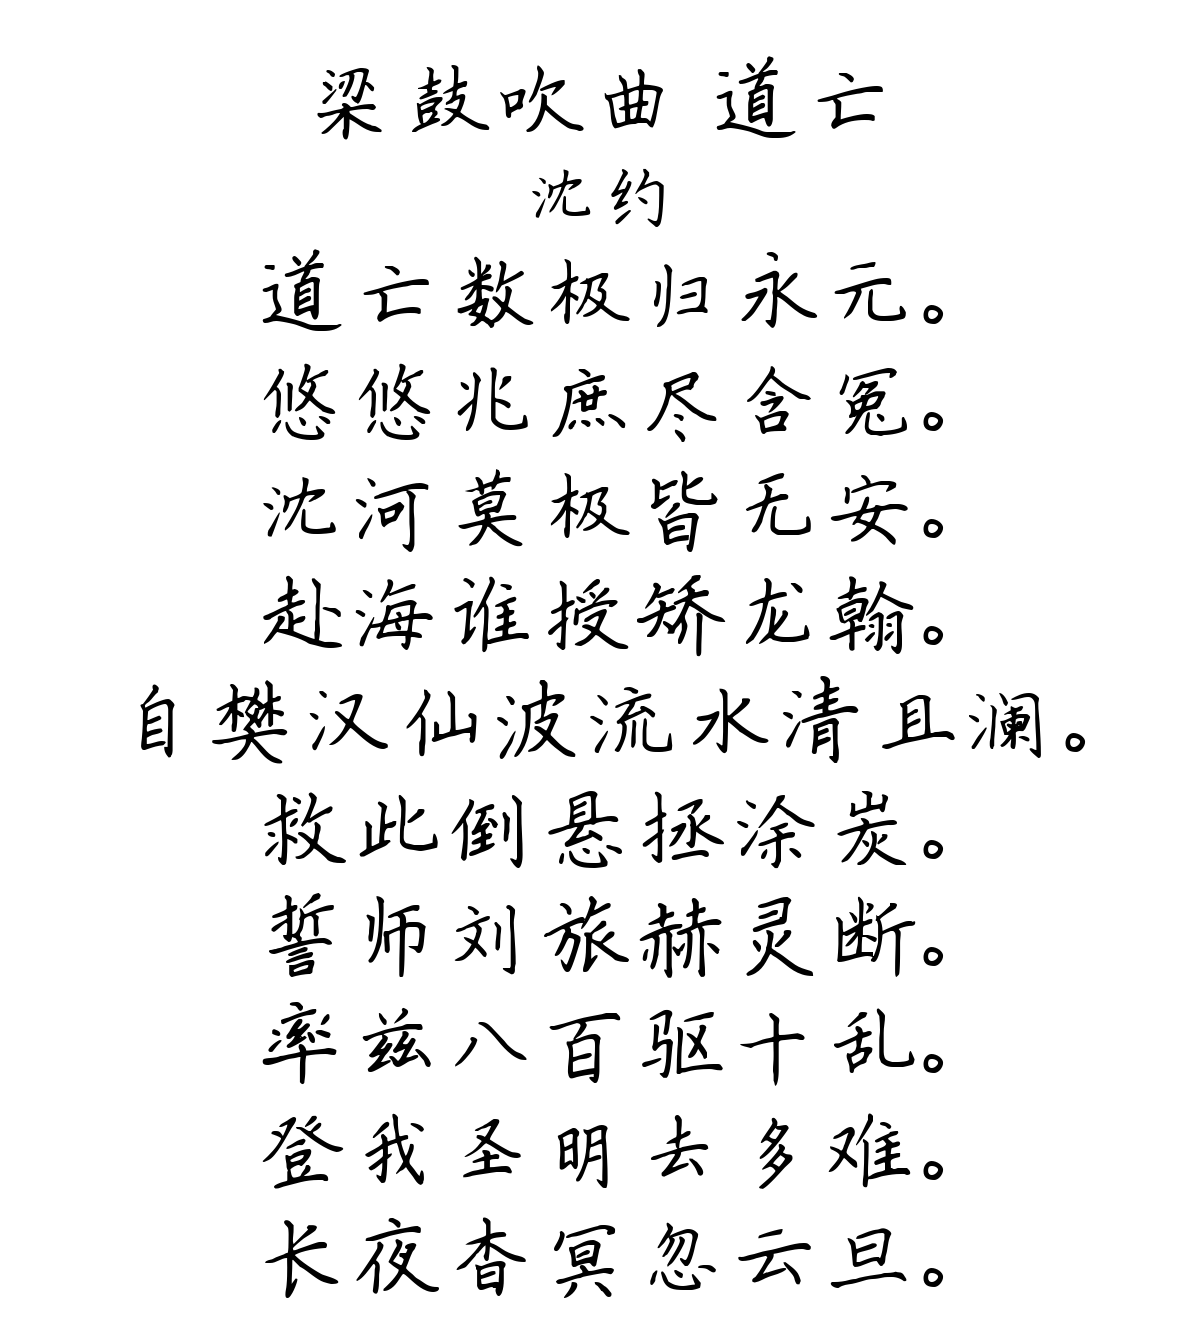 梁鼓吹曲 道亡
沈约
道亡数极归永元。
悠悠兆庶尽含冤。
沈河莫极皆无安。
赴海谁授矫龙翰。
自樊汉仙波流水清且澜。
救此倒悬拯涂炭。
誓师刘旅赫灵断。
率兹八百驱十乱。
登我圣明去多难。
长夜杳冥忽云旦。